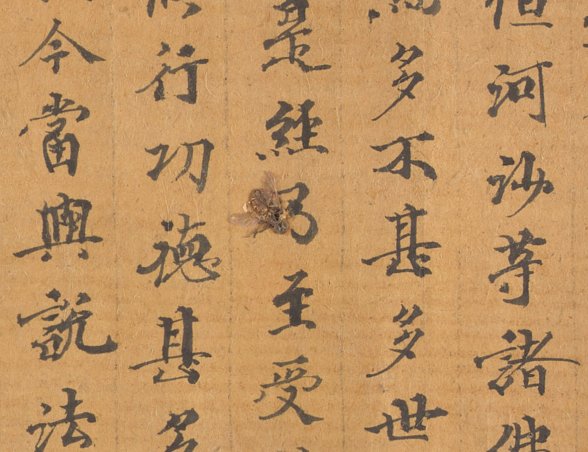 恒河沙等諸佛
為多不甚多世
是經乃至受
行功德甚多
今當與說法